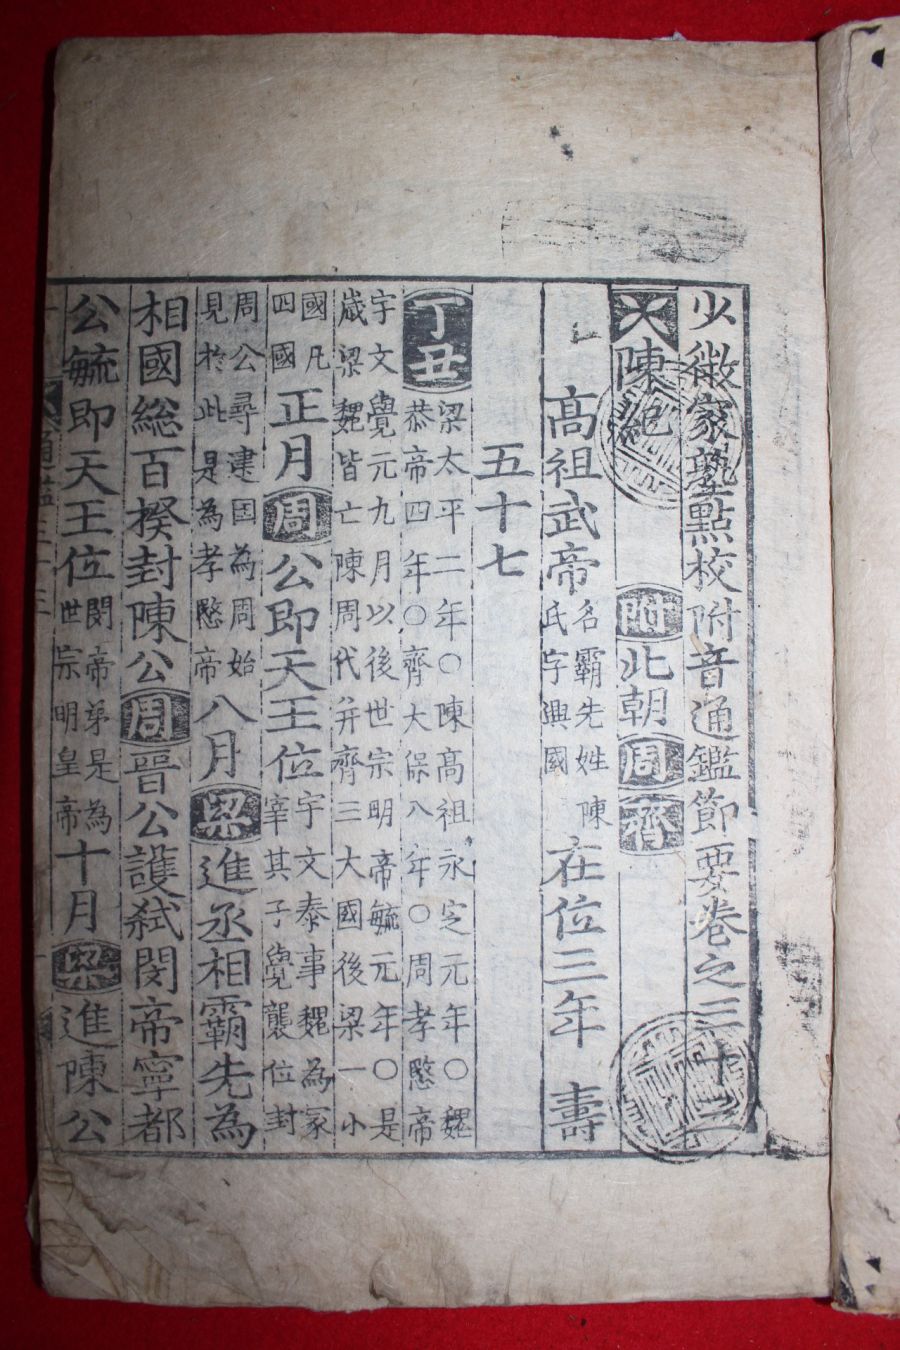 少微家塾點校附音通鑑節要卷之三十三
陳紀 附北朝周齊
高祖武帝名霸先姓陳氏字興國在位三年 壽
五十七
丁丑梁太平二年○陳高祖永定元年○魏
恭帝四年○齊大保八年○周孝愍帝
宇文覺元九月以後世宗明帝毓元年○是
歲梁魏皆亡陳周代并齊三大國後梁一小
國凡四國正月周公即天王位宇文泰事魏為冢宰其子覺襲位封
周公尋建国為周始見於此是為孝愍帝八月梁進丞相霸先為
相國総百揆封陳公周晉公護弑閔帝寧都
公毓即天王位閔帝弟是為世宗明皇帝十月梁進陳公